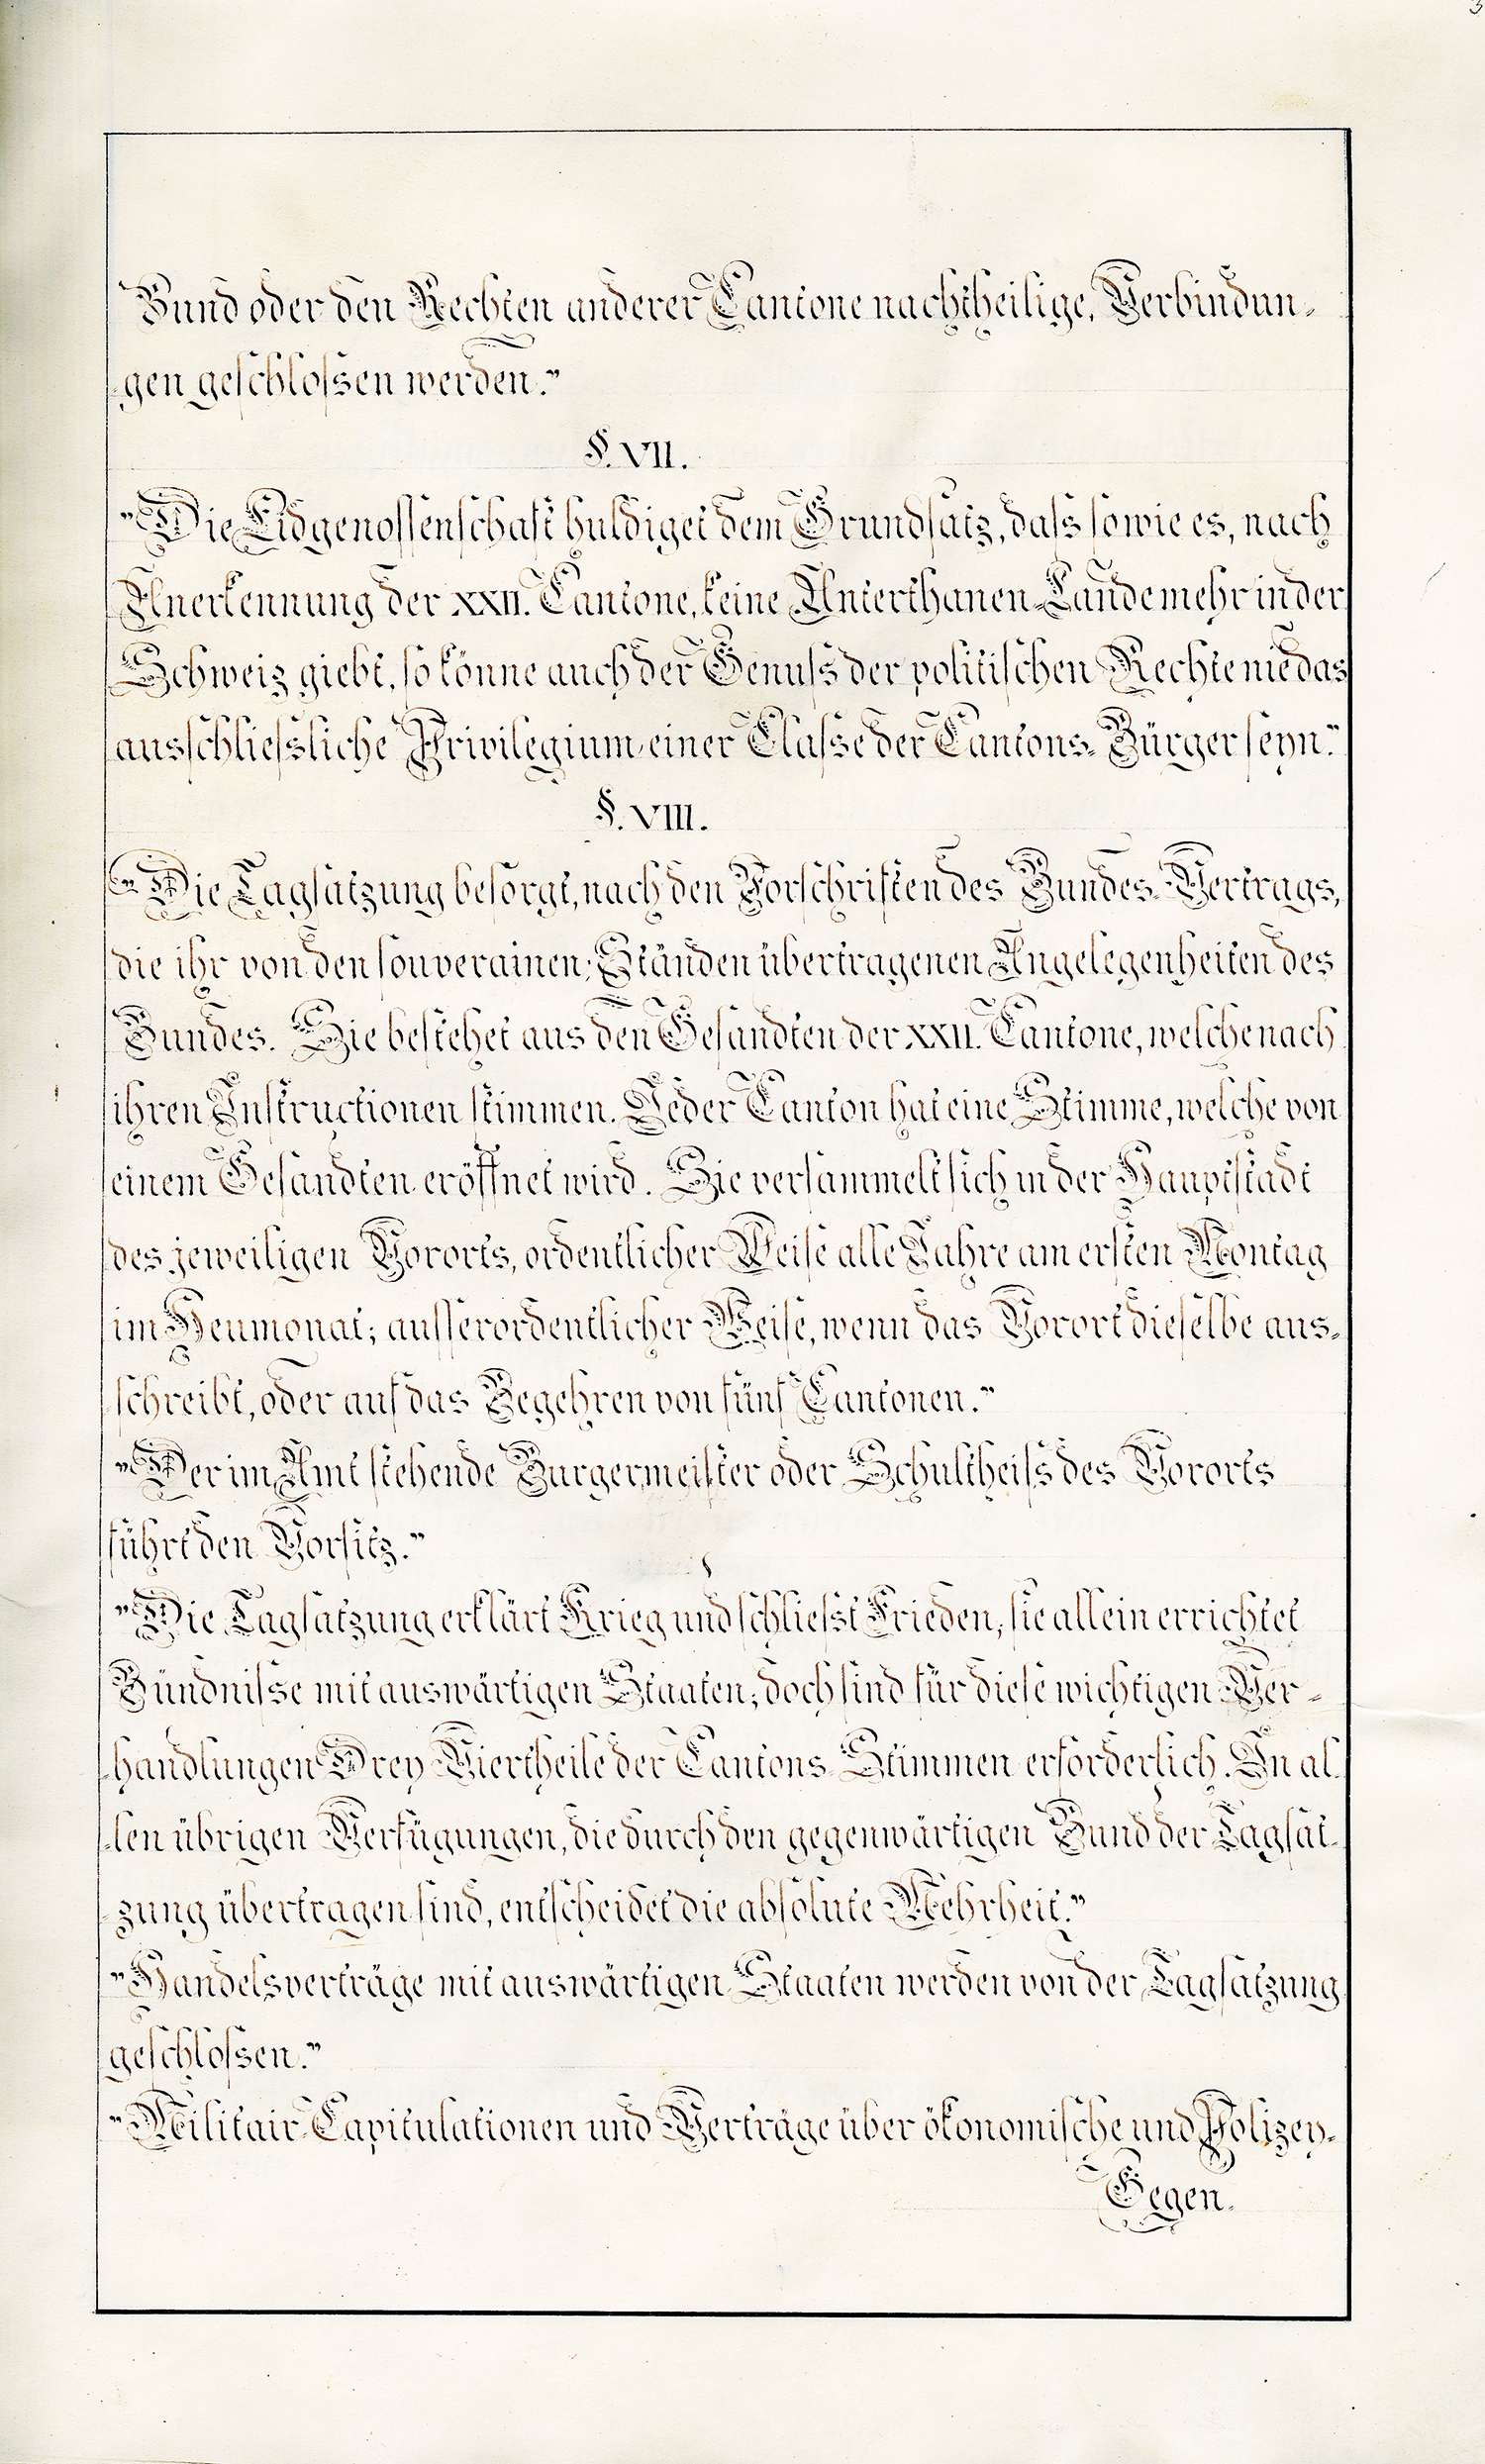 3
Bund oder den Rechten anderer Cantone nachtheilige, Verbindun-
gen geschlossen werden."
§. VII.
"Die Eidgenossenschaft huldiget dem Grundsatz, dass so wie es, nach
Anerkennung der XXII. Cantone, keine Unterthanen-Lande mehr in der
Schweiz giebt, so könne auch der Genuss der politischen Rechte nie das
ausschliessliche Privilegium einer Classe der Cantons-Bürger seyn."
§. VIII.
"Die Tagsatzung besorgt, nach den Vorschriften des Bundes-Vertrags,
die ihr von den souverainen Ständen übertragenen Angelegenheiten des
Bundes. Sie bestehet aus den Gesandten der XXII. Cantone, welche nach
ihren Instructionen stimmen. Jeder Canton hat eine Stimme, welche von
einem Gesandten eröffnet wird. Sie versammelt sich in der Hauptstadt
des jeweiligen Vororts, ordentlicher Weise alle Jahre am ersten Montag
im Heumonat; ausserordentlicher Weise, wenn das Vorort dieselbe aus-
schreibt, oder auf das Begehren von fünf Cantonen."
"Der im Amt stehende Burgermeister oder Schultheiss des Vororts
führt den Vorsitz."
"Die Tagsatzung erklärt Krieg und schliesst Frieden; sie allein errichtet
Bündnisse mit auswärtigen Staaten; doch sind für diese wichtigen Ver-
handlungen Drey Viertheile der Cantons-Stimmen erforderlich. In al-
len übrigen Verfügungen, die durch den gegenwärtigen Bund der Tagsat-
zung übertragen sind, entscheidet die absolute Mehrheit."
"Handelsverträge mit auswärtigen Staaten werden von der Tagsatzung
geschlossen."
"Militair-Capitulationen und Verträge über ökonomische und Polizey-
Gegen-